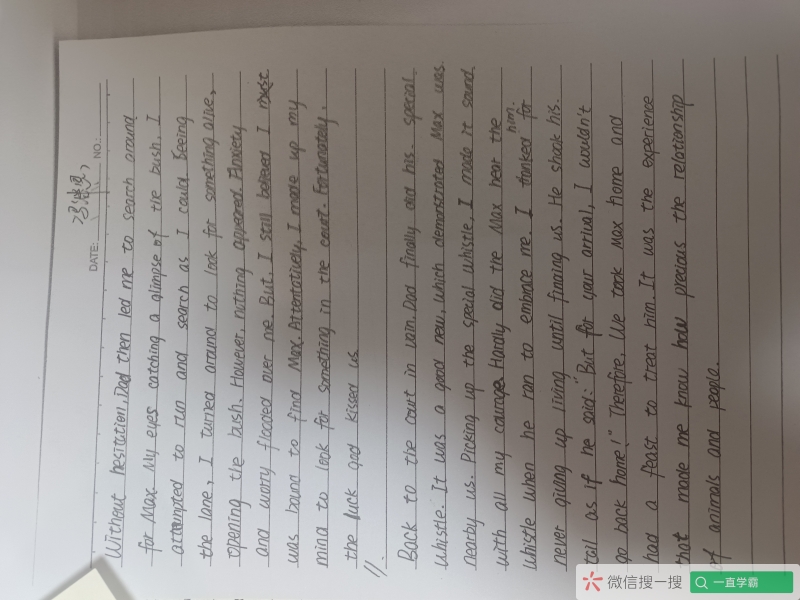 DATE:
NO.:
Without hesitation, Dad then led me to search around
for Max. My eyes catching a glimpse of the bush, I
attempted to run and search as I could. Seeing
the lane, I turned around to look for something alive,
opening the bush. However, nothing appeared. Anxiety
and worry flooded over me. But, I still believed I must
was bound to find Max. Attentatively, I made up my
mind to look for something in the court. Fortunately,
the luck god kissed us
//.
Back to the court in vain, Dad finally did his special
whistle. It was a good new, which demonstrated Max was
nearby us. Picking up the special whistle, I made it sound
with all my courage. Hardly did the Max hear the
whistle when he ran to embrace me. I thanked him. for
never giving up living until finding us. He shook his
tail as if he said: "But for your arrival, I wouldn't
go back home!" Therefore, We took Max home and
had a feast to treat him. It was the experience
that made me know how precious the relationship
of animals and people.
微信搜一搜
一直学霸